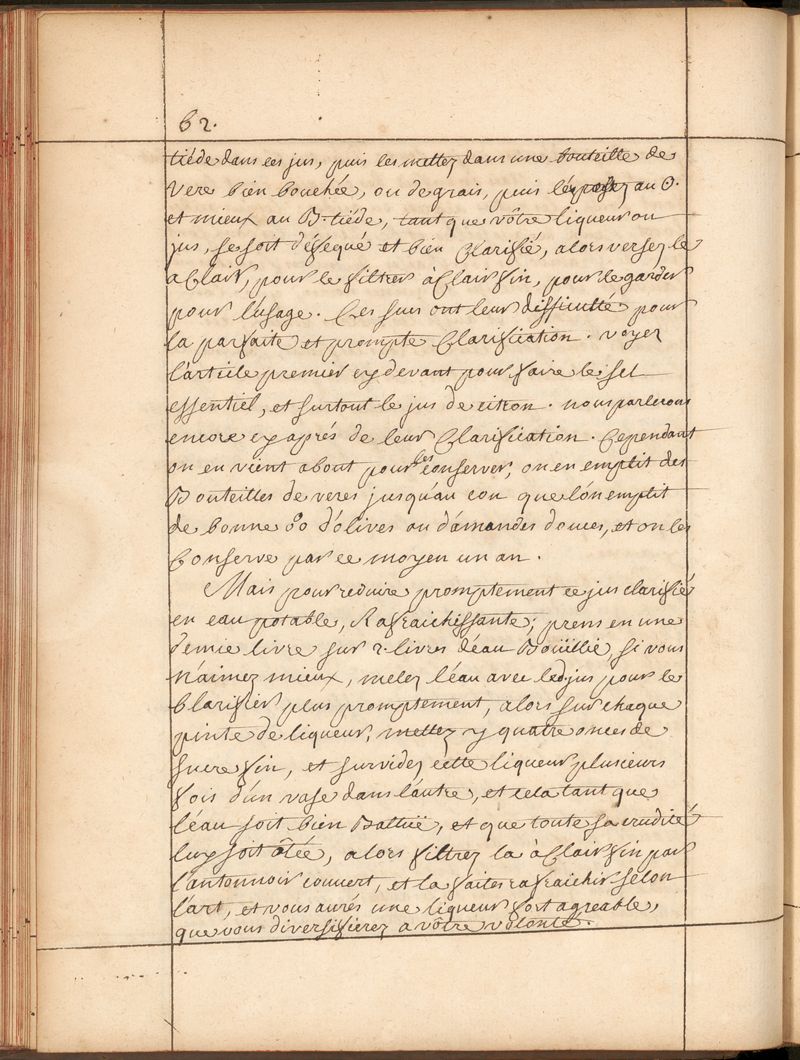 62.
tiéde dans ces jus, puis les mettez dans une bouteille de
Vere bien bouchée, ou de grais, puis léxposez au ☉.
et mieux au B. tiéde, tant que vôtre liqueur ou
jus, se soit déféqué et bien Clarifié, alors versez le
a Clair, pour le filtrer à Clair fin, pour le garder
pour l'usage. Ces sucs ont leur difficulté pour
la parfaite et prompte Clarification. voyez
l'article premier cy devant pour faire le sel
essentiel, et surtout le jus de citron. nous parlerons
encore cy aprés de leur Clarification. Cependant
on en vient about pour les conserver, on en emplit des
Bouteilles de veres jusqu'au cou que l'on emplit
de bonne d'olives ou d'amandes douces, et on les
Conserve par ce moyen un an.
Mais pour reduire promptement ce jus clarifié
en eau potable, Rafraichissante; prens en une
demie livre sur 2. livres d'eau Boüillie, si vous
n'aimez mieux, melez l'eau avec led. jus pour le
Clarifier plus promptement, alors sur chaque
pinte de liqueur, mettez y quatre onces de
sucre fin, et survidez cette liqueur plusieurs
fois d'un vase dans l'autre, et cela tant que
l'eau soit bien Battüe, et que toute sa crudité
luy soit ôtée, alors filtrez la à Clair fin par
l'antonnoir couvert, et la faites rafraichir selon
l'art, et vous aurés une liqueur fort agreable,
que vous diversifierez a vôtre volonté.